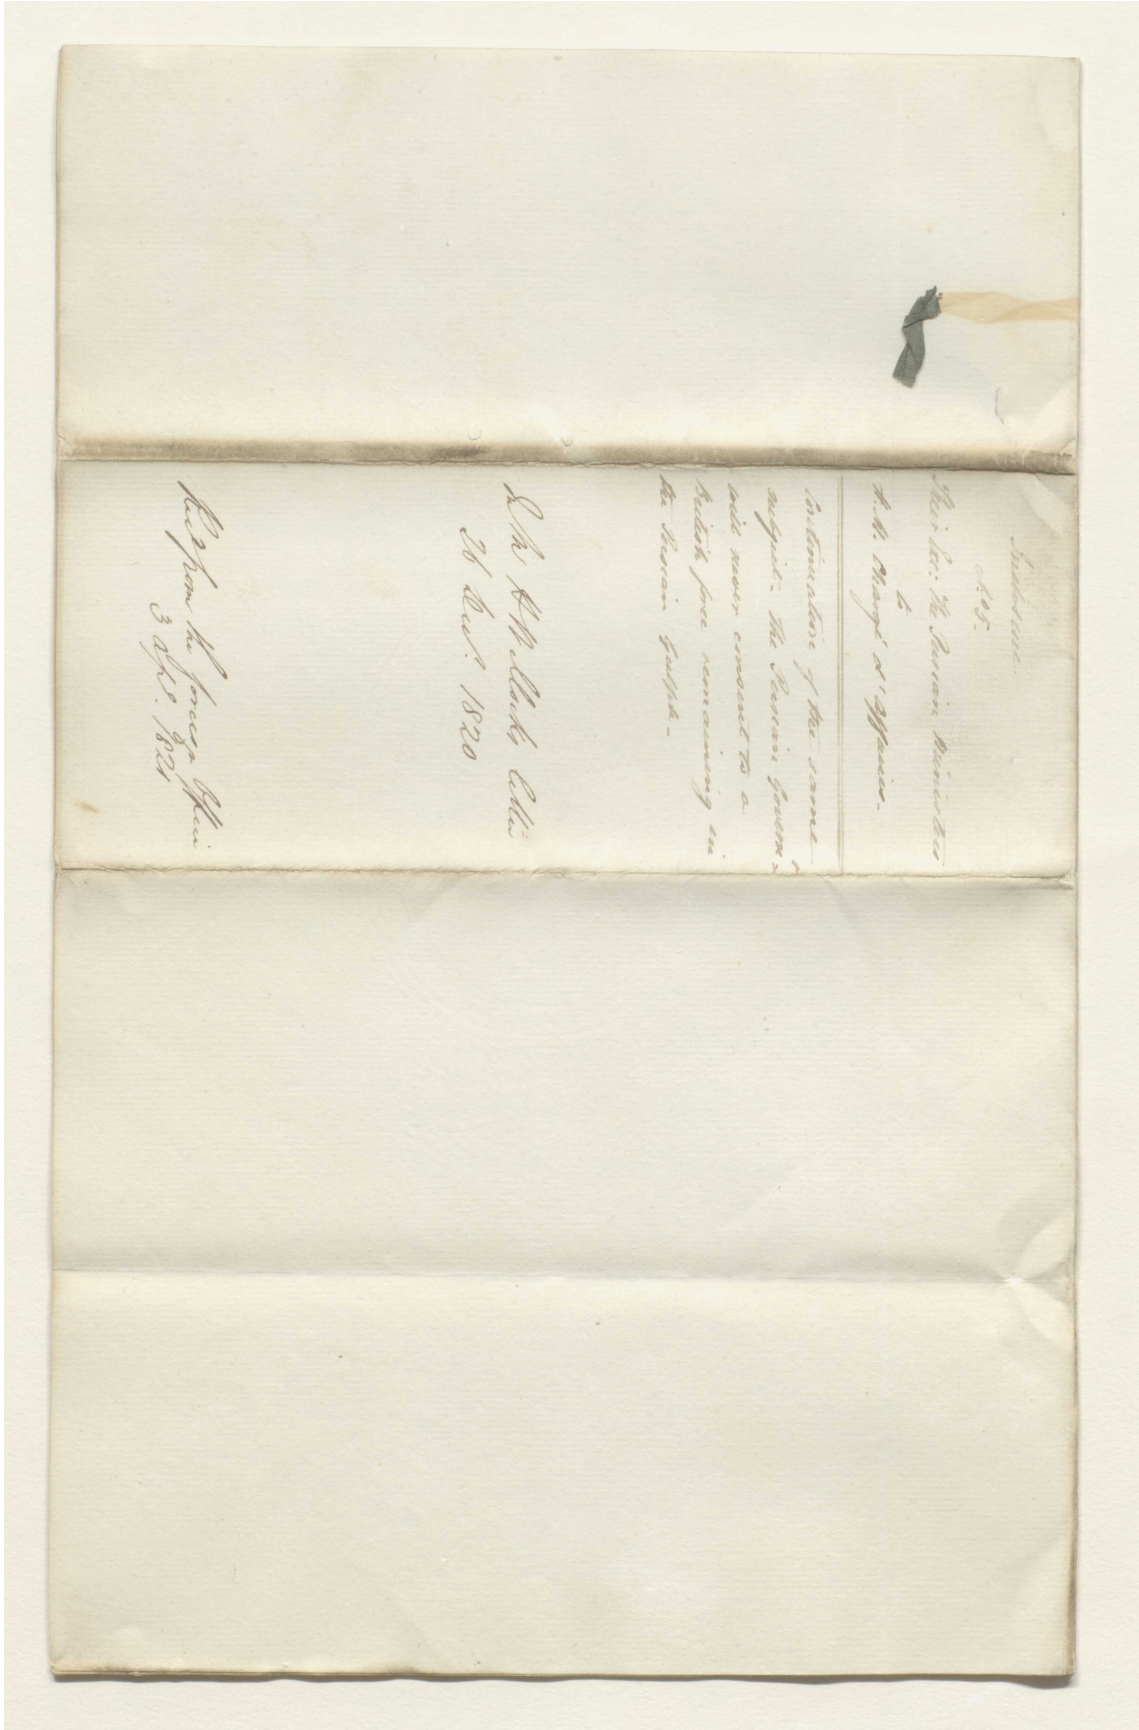 Inclosure
No. 5.
Their Exc: The Persian Ministers
to
H. M. Chargé d'Affaires.
Continuation of the same
subject - The Persian Governt
will never consent to a
British force remaining in
the Persian Gulph -
In Mr H Willock's letter
26 Decr. 1820
Rec from the Foreign Office
3 Apl. 1821